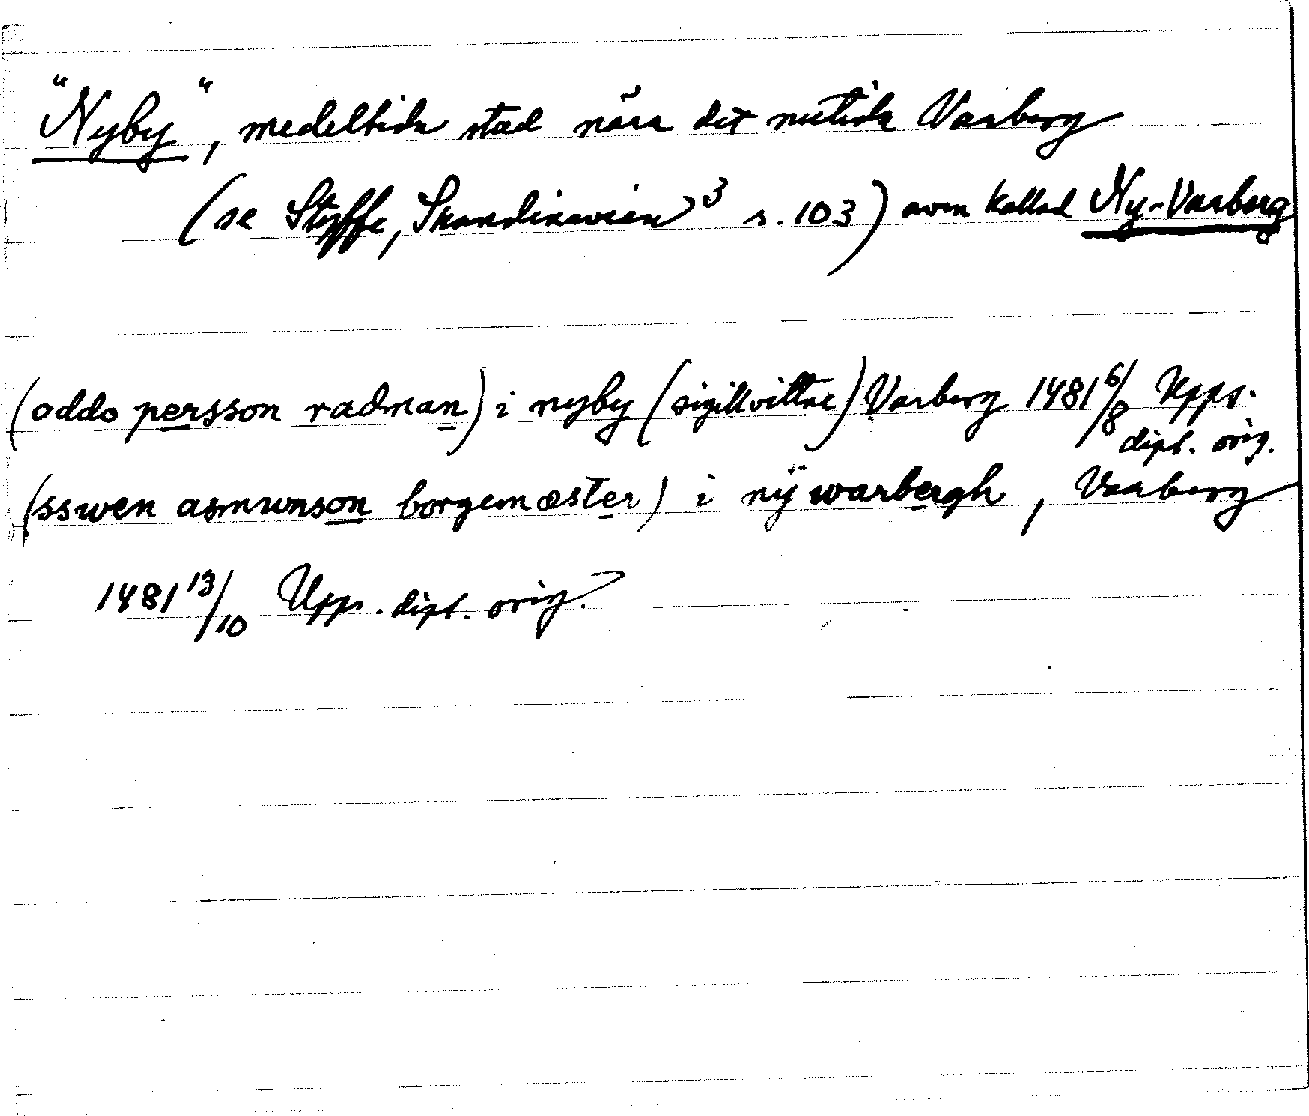 "Nyby", medeltida stad nära det nutida Varberg
(se Styffe, Skandinavien³ s. 103) även kallad Ny-Varberg
(oddo persson radman) i nyby (sigillvittne) Varberg 1481 6/8 Upps.
dipl. orig.
(sswen asmunson borgemæster) i nÿ warbergh, Varberg
1481 13/10 Upps. dipl. orig.